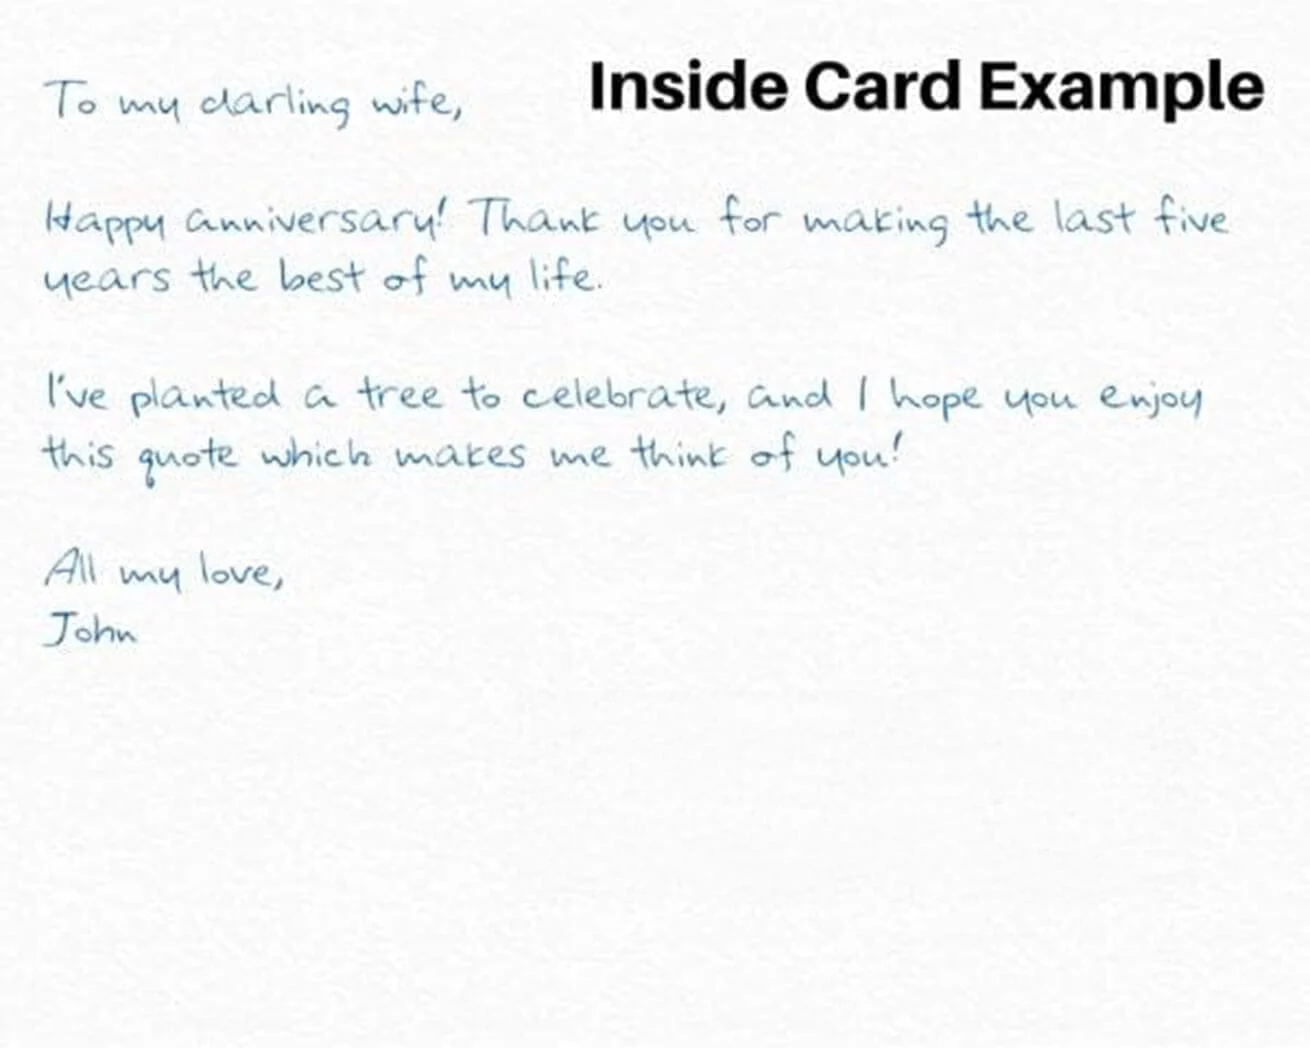 Inside Card Example
To my darling wife,
Happy anniversary! Thank you for making the last five
years the best of my life.
I've planted a tree to celebrate, and I hope you enjoy
this quote which makes me think of you!
All my love,
John